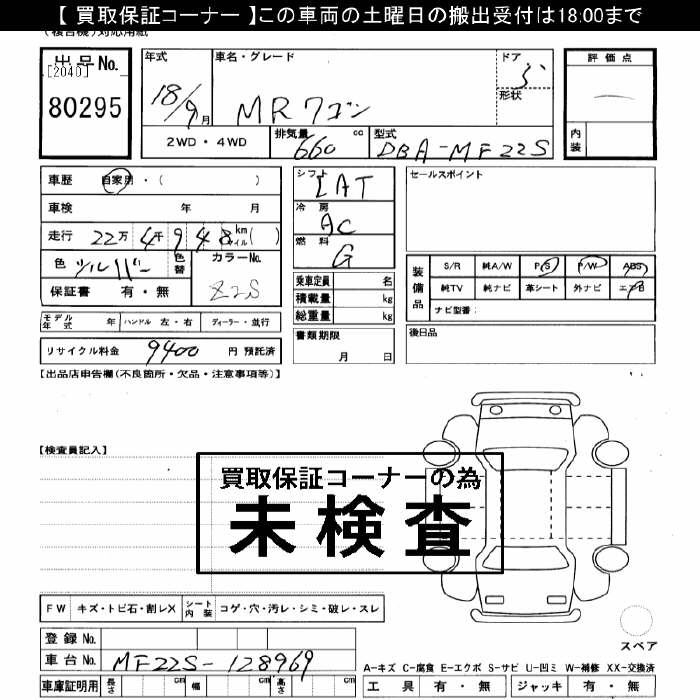 【 買取保証コーナー 】この車両の土曜日の搬出受付は18:00まで
出品No.
[2040]
80295
年式
18/9月
車名・グレード
MRワゴン
ドア
5
形状
評価点
内装
2WD・4WD
排気量
660
cc
型式
DBA-MF22S
車歴
自家用・( )
車検 年 月
走行 22万 4千 9 4 8 km マイル( )
色 シルバー
色替
カラーNo.
Z2S
保証書 有・無
シフト
IAT
冷房
AC
燃料
G
セールスポイント
装備品
S/R 純A/W P/S P/W ABS
純TV 純ナビ 革シート 外ナビ エアB
ナビ型番:
乗車定員 名
積載量 kg
総重量 kg
モデル年式 年 ハンドル 左・右 ディーラー・並行
リサイクル料金 9400 円 預託済
書類期限
月 日
後日品
【出品店申告欄(不良箇所・欠品・注意事項等)】
【検査員記入】
買取保証コーナーの為
未検査
FW キズ・トビ石・割レX シート内装 コゲ・穴・汚レ・シミ・破レ・スレ
スペア
登録No.
車台No. MF22S-128969
A-キズ C-腐食 E-エクボ S-サビ U-凹ミ W-補修 XX-交換済
車庫証明用 長さ cm 幅 cm 高さ cm
工具 有・無 ジャッキ 有・無